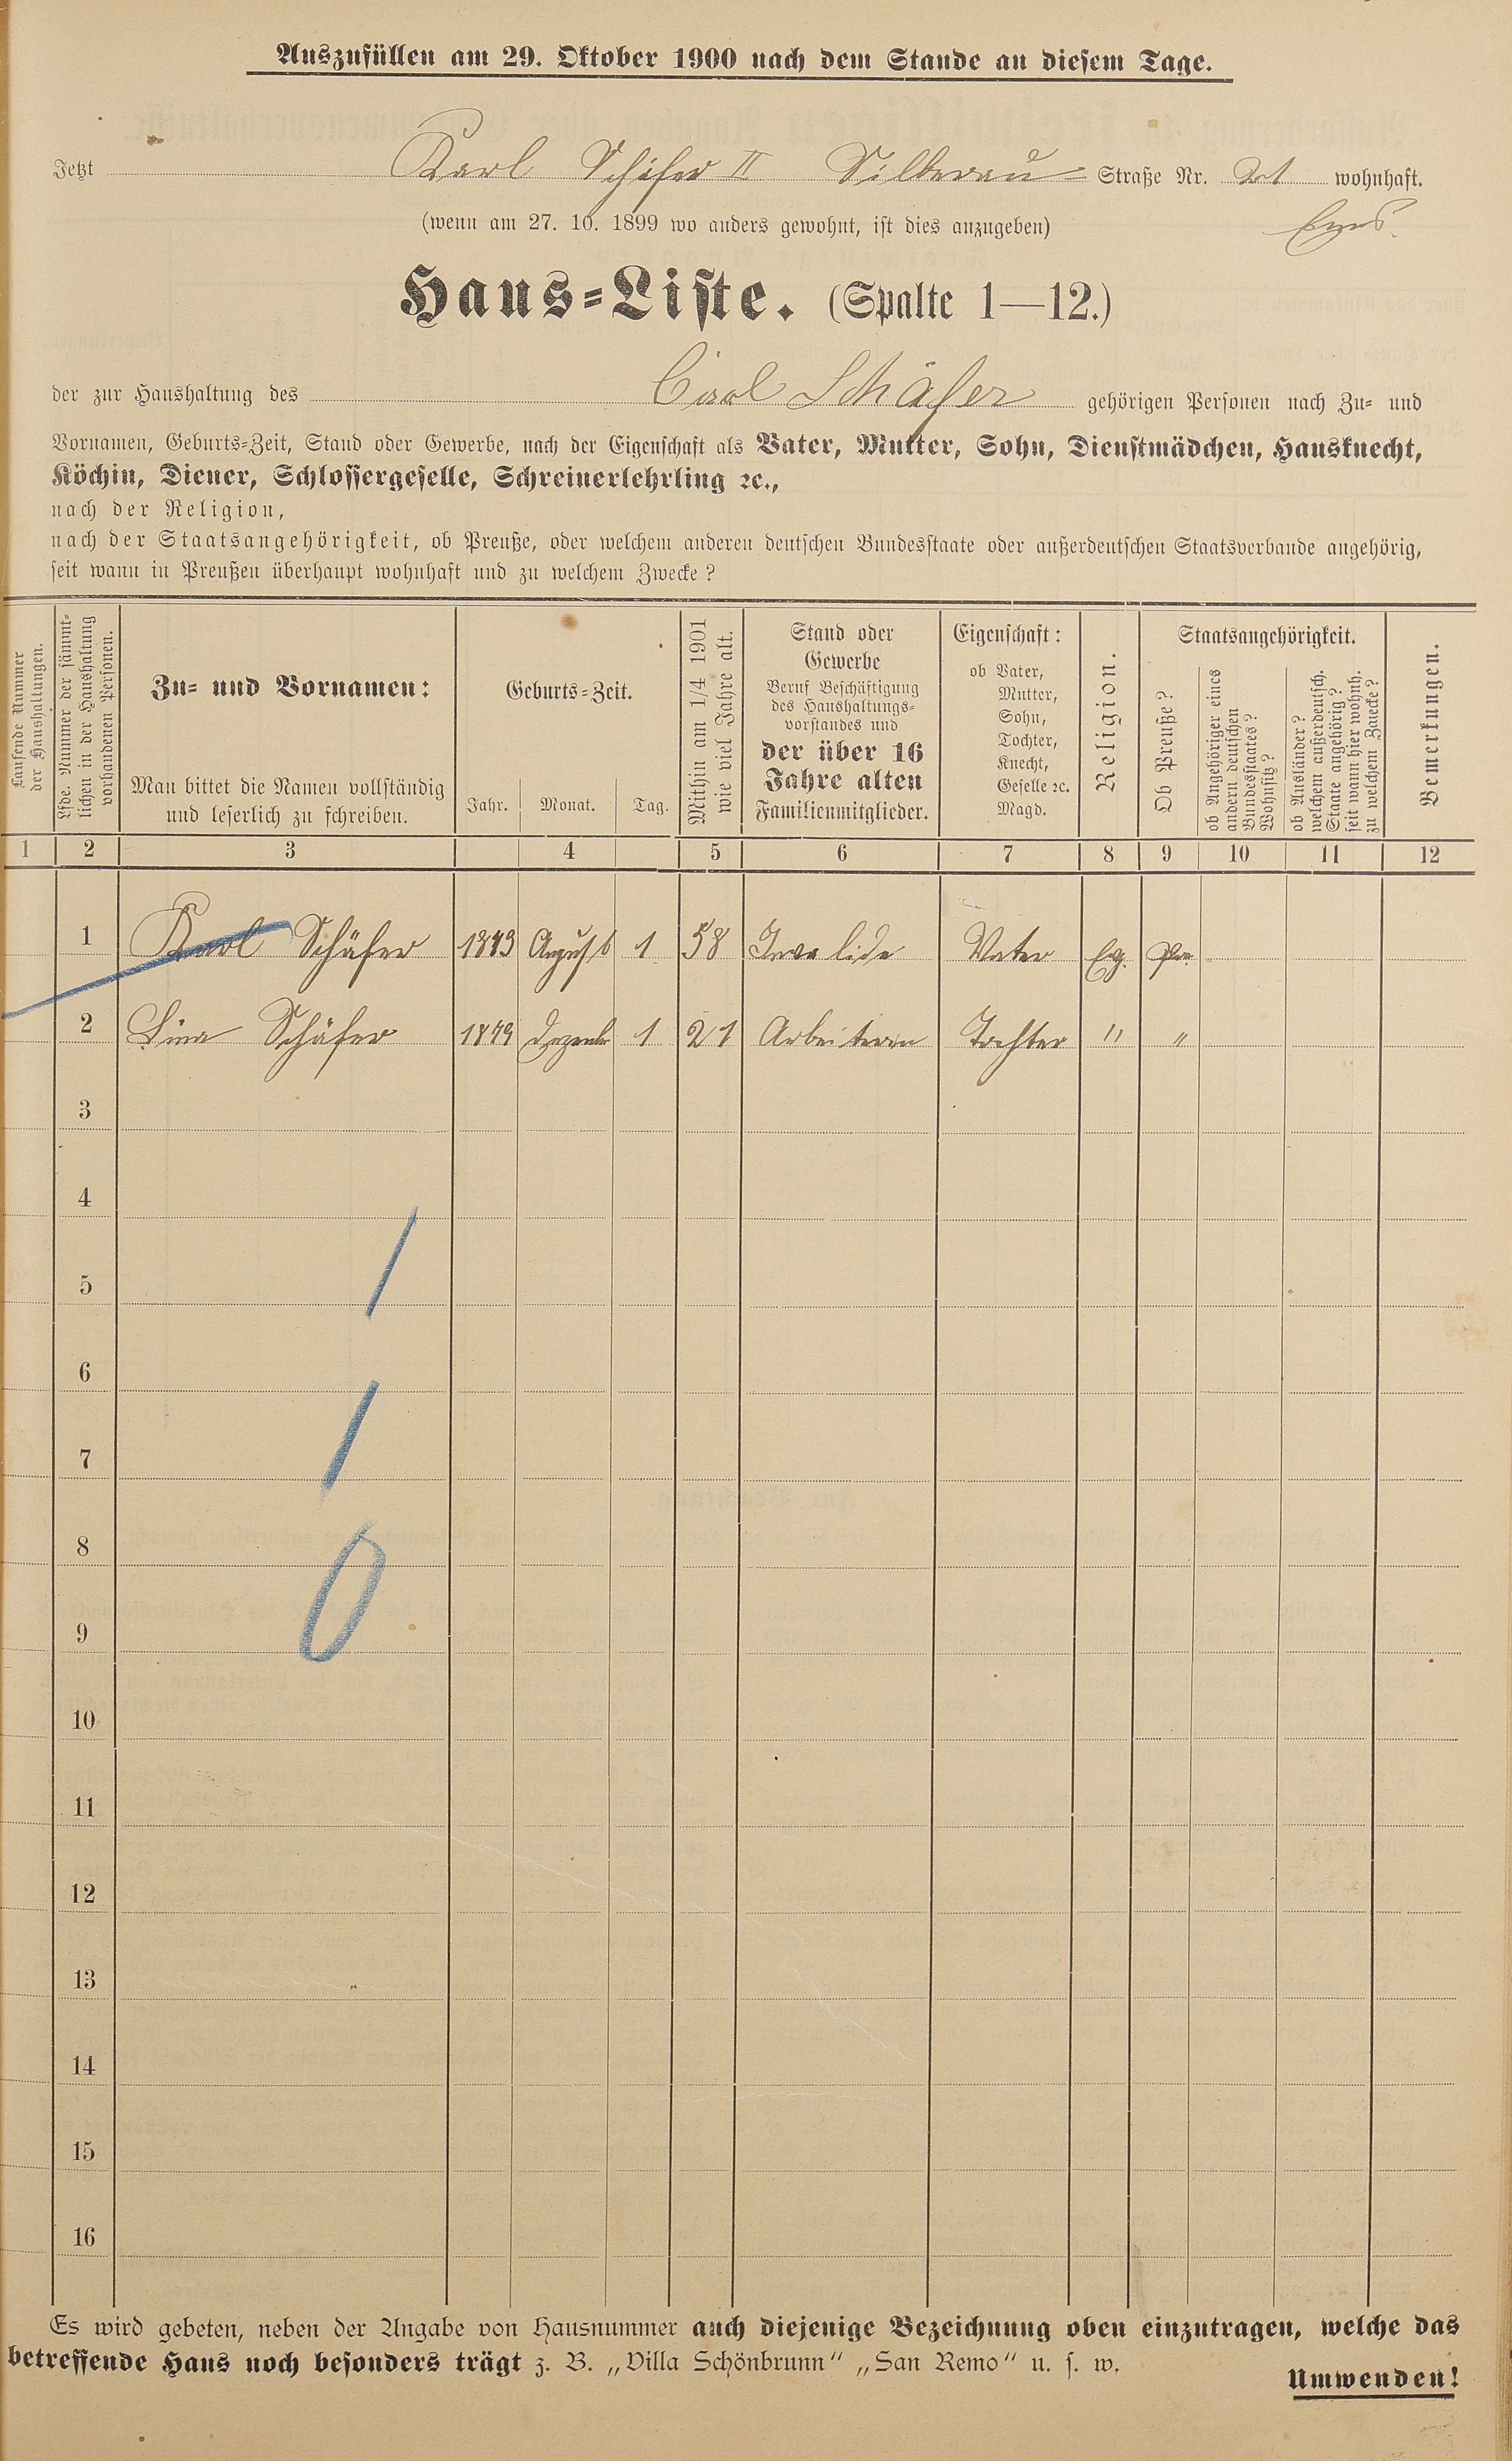 Auszufüllen am 29. Oktober 1900 nach dem Stande an diesem Tage.
Jetzt Karl Schäfer II Silberau Straße Nr. wohnhaft.
(wenn am 27. 10. 1899 wo anders gewohnt, ist dies anzugeben) Ems.
Haus-Liste. (Spalte 1—12.)
der zur Haushaltung des Carl Schäfer gehörigen Personen nach Zu- und
Vornamen, Geburts-Zeit, Stand oder Gewerbe, nach der Eigenschaft als Vater, Mutter, Sohn, Dienstmädchen, Hausknecht,
Köchin, Diener, Schlossergeselle, Schreinerlehrling ꝛc.,
nach der Religion,
nach der Staatsangehörigkeit, ob Preuße, oder welchem anderen deutschen Bundesstaate oder außerdeutschen Staatsverbande angehörig,
seit wann in Preußen überhaupt wohnhaft und zu welchem Zwecke?
Laufende Nummer
der Haushaltungen.
Lfde. Nummer der sämmt-
lichen in der Haushaltung
vorhandenen Personen.
Zu- und Vornamen:
Man bittet die Namen vollständig
und leserlich zu schreiben.
Geburts-Zeit.
Jahr. Monat. Tag.
Mithin am 1/4 1901
wie viel Jahre alt.
Stand oder
Gewerbe
Beruf Beschäftigung
des Haushaltungs-
vorstandes und
der über 16
Jahre alten
Familienmitglieder.
Eigenschaft:
ob Vater,
Mutter,
Sohn,
Tochter,
Knecht,
Geselle ꝛc.
Magd.
Religion.
Staatsangehörigkeit.
Ob Preuße?
ob Angehöriger eines
andern deutschen
Bundesstaates?
Wohnsitz?
ob Ausländer?
welchem außerdeutsch.
Staate angehörig?
seit wann hier wohnh.
zu welchem Zwecke?
Bemerkungen.
1 2 3 4 5 6 7 8 9 10 11 12
1 Karl Schäfer 1843 August 1 58 Invalide Vater Ev. Pr.
2 Lina Schäfer 1879 Dezember 1 21 Arbeiterin Tochter " "
3
4
5
6
7
8
9
10
11
12
13
14
15
16
1
1
0
Es wird gebeten, neben der Angabe von Hausnummer auch diejenige Bezeichnung oben einzutragen, welche das
betreffende Haus noch besonders trägt z. B. „Villa Schönbrunn" „San Remo" u. s. w.
Umwenden!